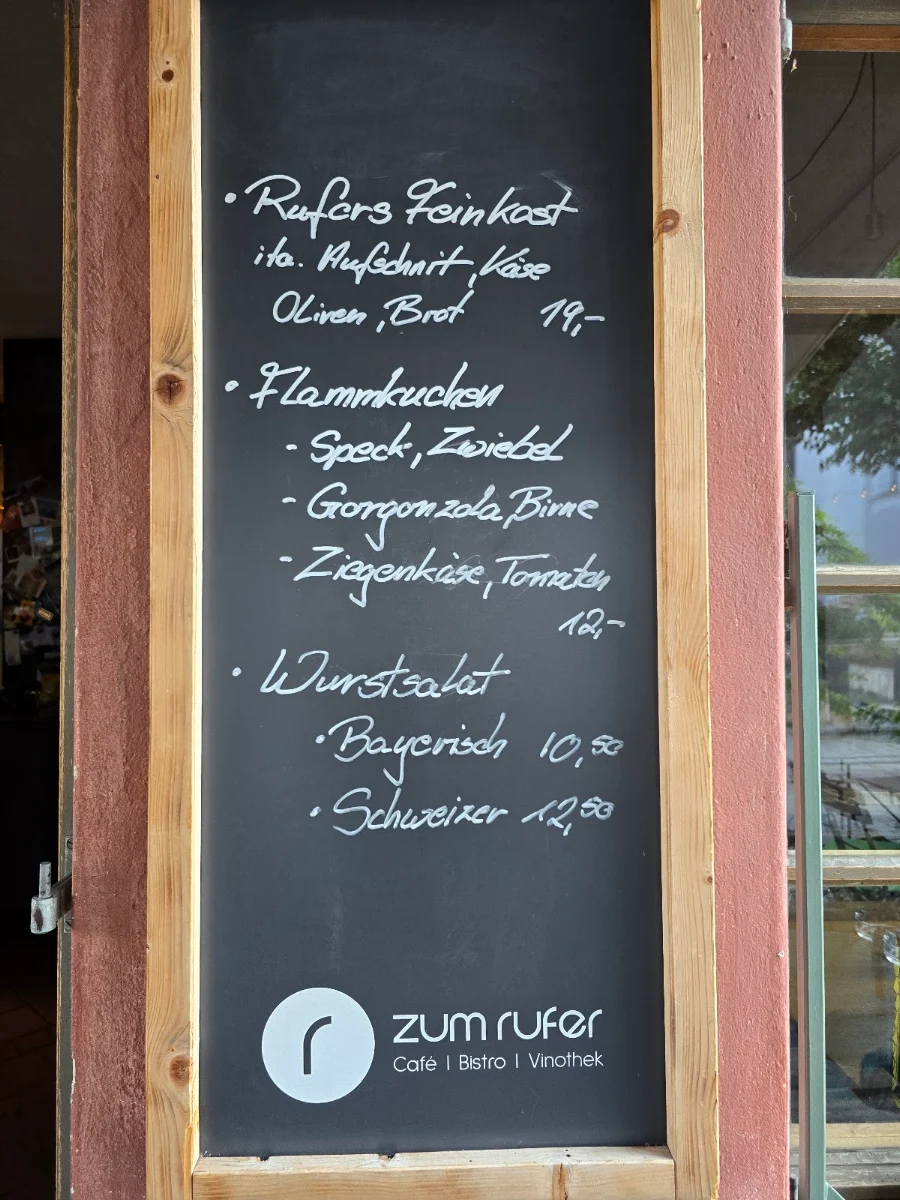 • Rufers Feinkost
ita. Aufschnitt, Käse
Oliven, Brot 19,-
• Flammkuchen
- Speck, Zwiebel
- Gorgonzola, Birne
- Ziegenkäse, Tomaten
12,-
• Wurstsalat
• Bayerisch 10,50
• Schweizer 12,50
r
zum rufer
Café | Bistro | Vinothek